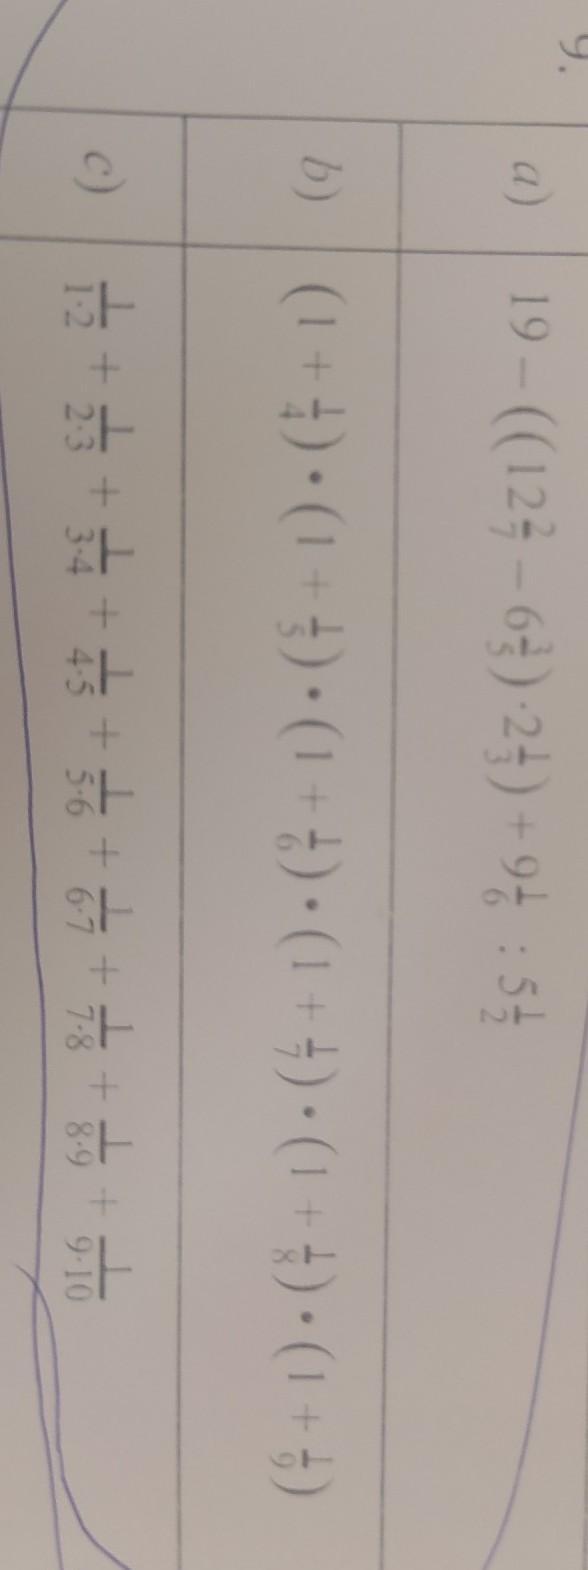 9.
a) 19 − ((12 2/7 − 6 3/5) · 2 1/3) + 9 1/6 : 5 1/2
b) (1 + 1/4) • (1 + 1/5) • (1 + 1/6) • (1 + 1/7) • (1 + 1/8) • (1 + 1/9)
c) 1/(1·2) + 1/(2·3) + 1/(3·4) + 1/(4·5) + 1/(5·6) + 1/(6·7) + 1/(7·8) + 1/(8·9) + 1/(9·10)